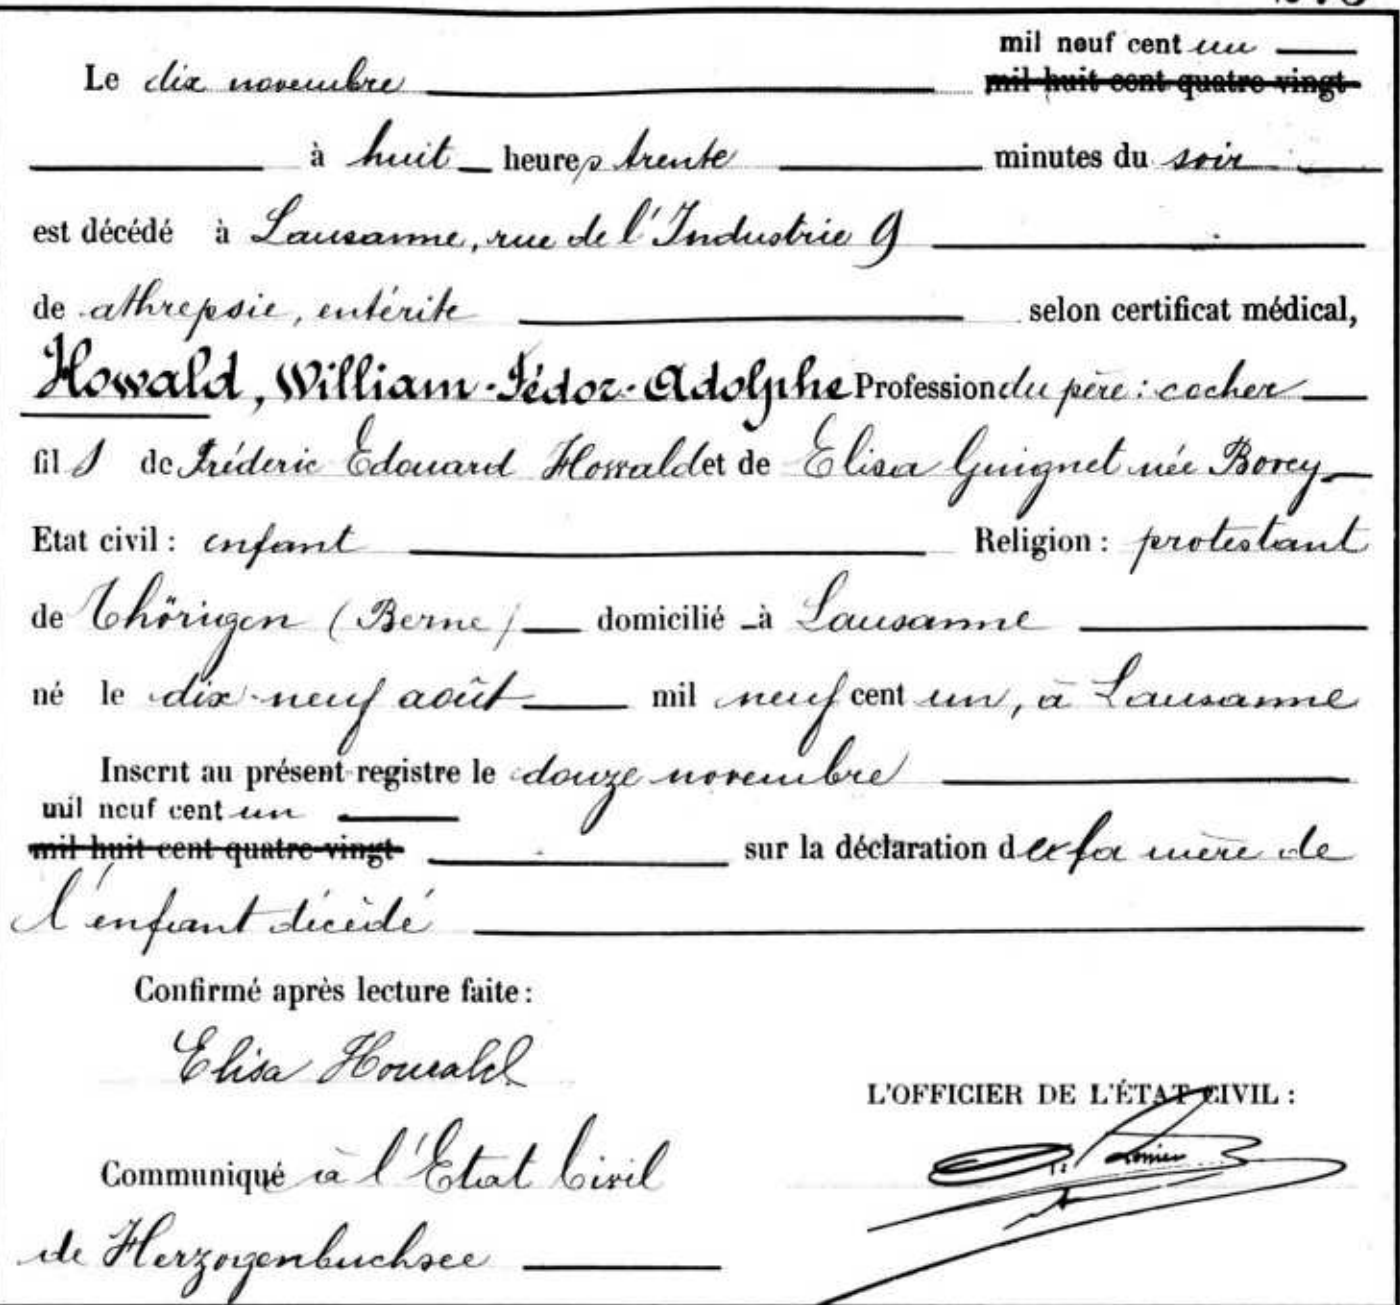 mil neuf cent un
Le dix novembre mil huit cent quatre-vingt
à huit heures trente minutes du soir
est décédé à Lausanne, rue de l'Industrie 9
de athrepsie, entérite selon certificat médical,
Howald, William-Fédor-Adolphe Profession du père : cocher
fils de Fréderic Edouard Howald et de Elisa Guignet née Borey
Etat civil : enfant Religion : protestant
de Thörigen (Berne) domicilié à Lausanne
né le dix-neuf août mil neuf cent un, à Lausanne
Inscrit au présent registre le douze novembre
mil neuf cent un
mil huit cent quatre-vingt sur la déclaration de la mère de
l'enfant décédé
Confirmé après lecture faite :
Elisa Howald
L'OFFICIER DE L'ÉTAT CIVIL :
Communiqué à l'Etat Civil
de Herzogenbuchsee